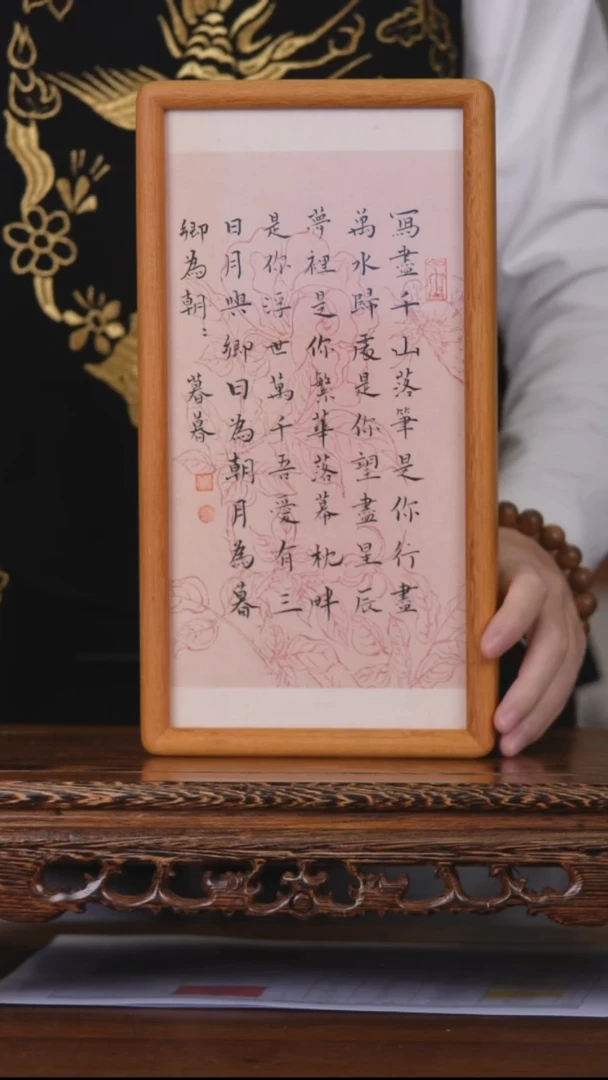 寫盡千山落筆是你行盡
萬水歸處是你望盡星辰
夢裡是你繁華落幕枕畔
是你浮世萬千吾愛有三
日月與卿日為朝月為暮
卿為朝〻暮暮